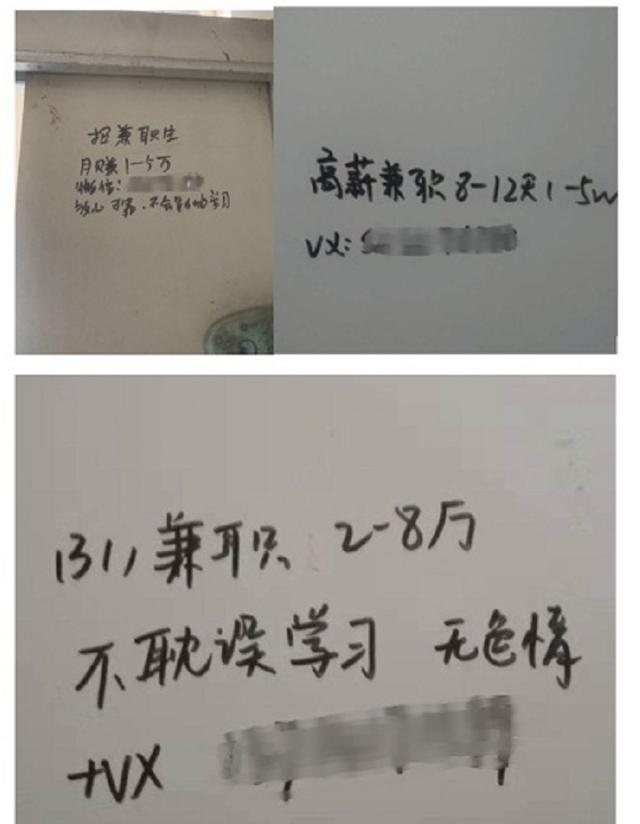 招兼职生
月赚1-5万
微信:
可靠.不会
学习
高薪兼职 8-12天1-5w
VX:
兼职 2-8万
不耽误学习 无色情
+VX